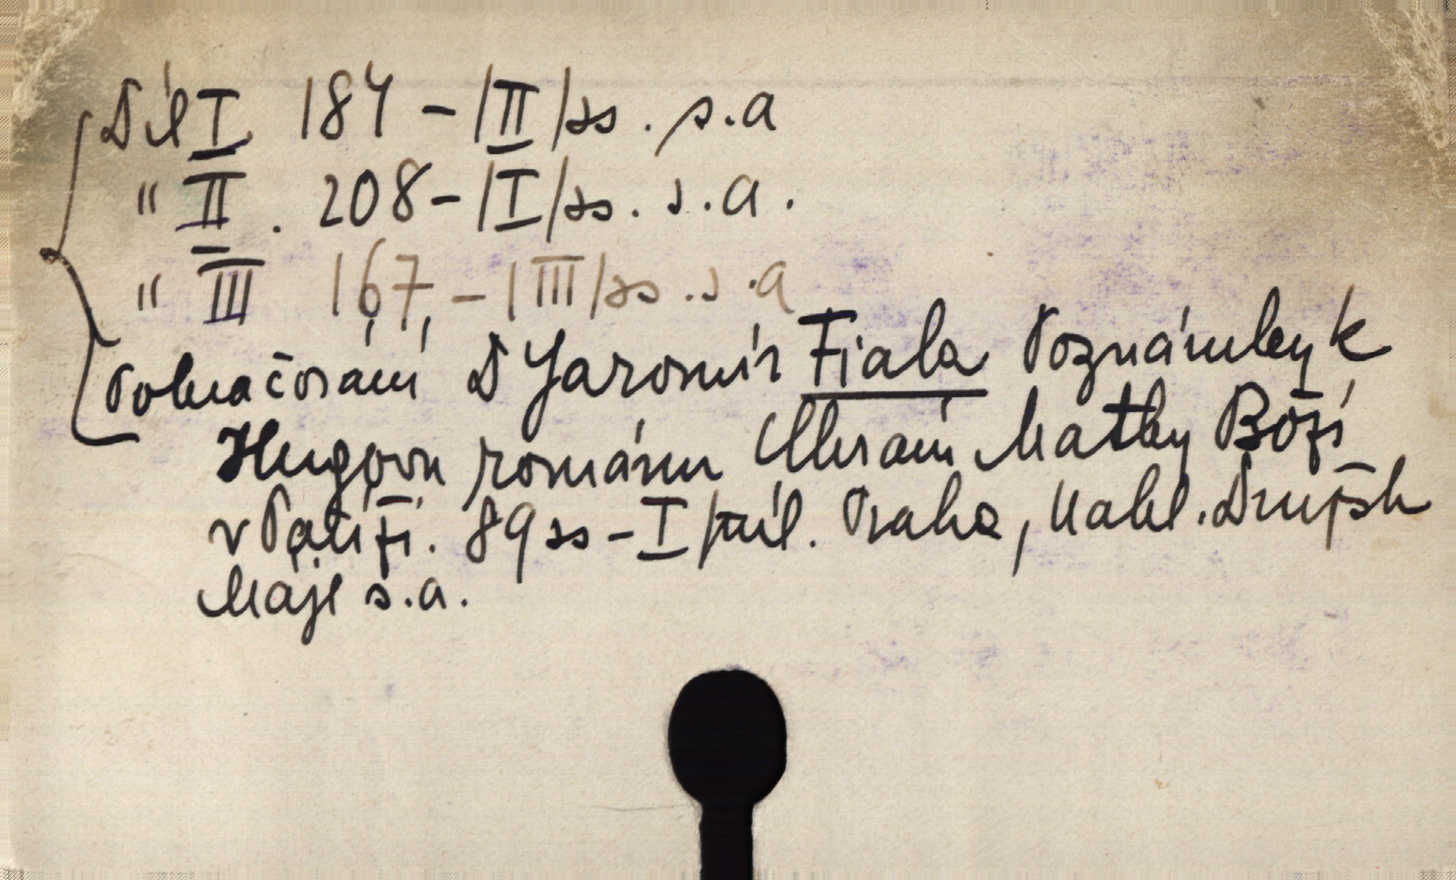 Díl I. 184 - |II| ss. s.a
" II. 208 - |I| ss. s.a.
" III 167, - |III| ss. s.a
Pokračování D Jaromír Fiala Poznámky k
Hugovu románu Chrám Matky Boží
v Paříži. 89 ss - I příl. Praha, Nakl. Družst
Máje s.a.